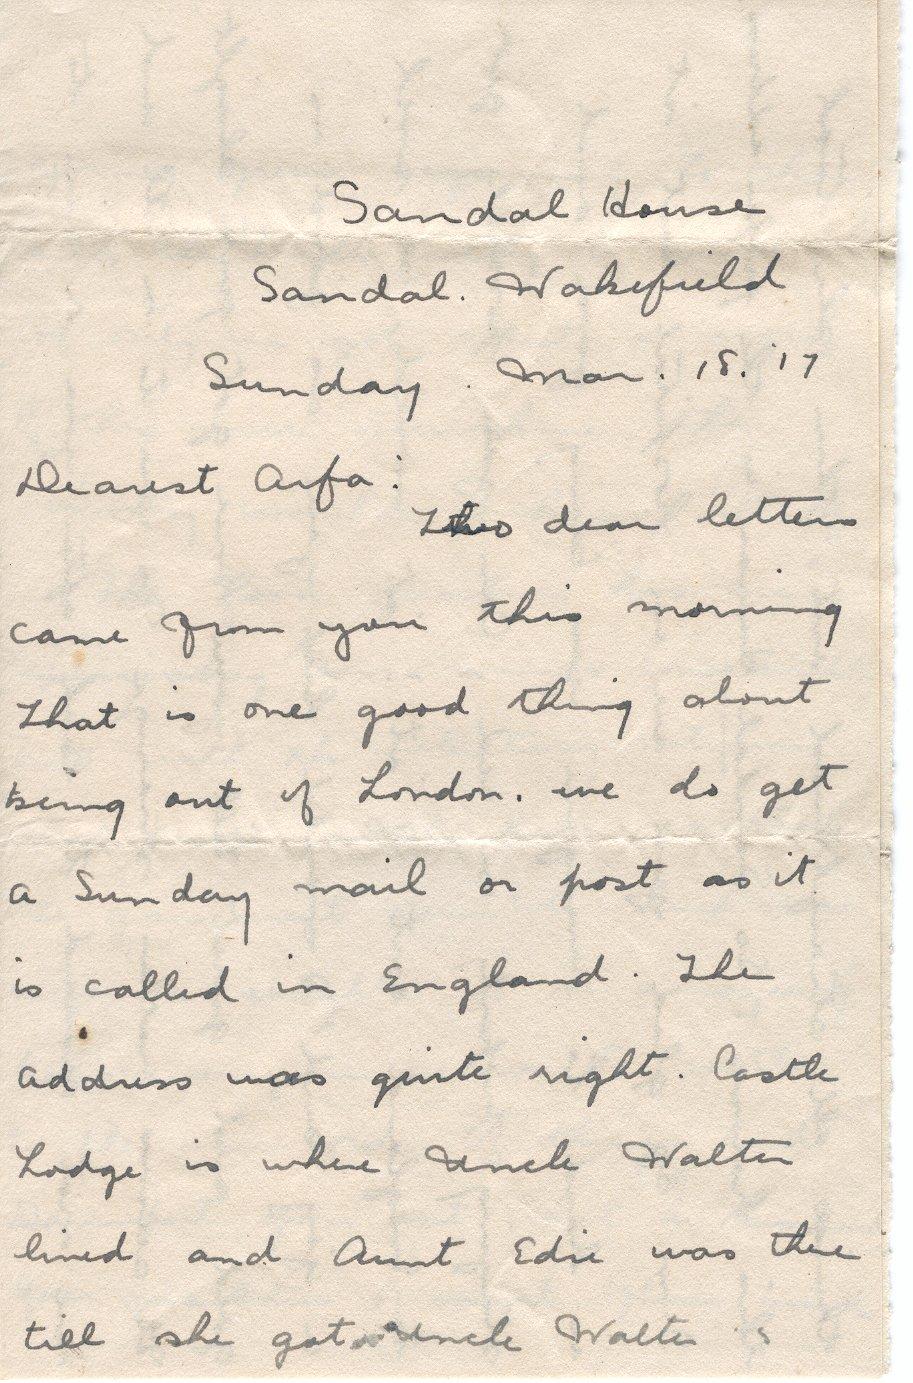 Sandal House
Sandal. Wakefield
Sunday. Mar. 18. '17
Dearest Arfa:
Two dear letters
came from you this morning
That is one good thing about
being out of London. we do get
a Sunday mail or post as it
is called in England. The
address was quite right. Castle
Lodge is where Uncle Walter
lived and Aunt Edie was there
till she got Uncle Walter s